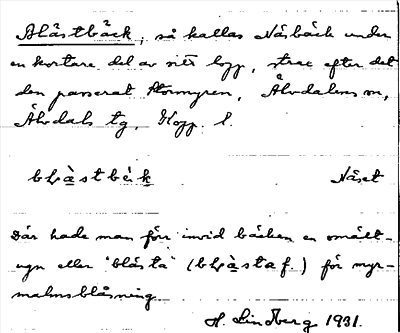 Blåstbäck, så kallas Näsbäck under
en kortare del av sitt lopp, strax efter det
den passerat Stormyren, Älvdalens sn,
Älvdals tg, Kopp. l.
Näset
Där hade man förr invid bäcken en smält-
ugn eller "blåsta" f.) för myr-
malmsblåsning
H. Lindberg 1931.